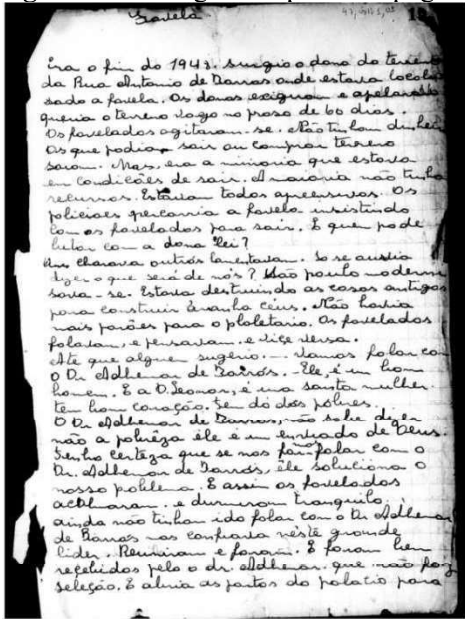 Favela
Era o fim do 1948 surgio o dono do terreno
da Rua Antonio de Barros onde estava locali
sado a favela. Os donos exigiram e apelaram
queria o terreno vago no praso de 60 dias.
Os favelados agitaram-se. Não tinham dinheiro
Os que podiam sair ou comprar terreno
saiam. Mas, era a minoria que estava
em condições de sair. A maioria não tinha
recursos. Estavam todos apreensivos. Os
policiaes percorria a favela insistindo
com os favelados para sair. E quem pode
lutar com a dona lei?
Uns chorava outros lamentavam. So se ouvia
dizer o que será de nós? São paulo moderni
sava-se. Estava destruindo as casas antigas
para construir aranha céus. Não havia
mais porões para o ploletario. Os favelados
falavam, e pensavam. e vice versa.
Até que alguem sugerio... Vamos falar com
O Dr Adhemar de Barros. Ele, é um bom
homem. E a D. Leonor, é uma santa mulher
tem bom coração. tem dó dos pobres.
O Dr Adhemar de Barros, não sabe dizer
não a pobrêza êle é um enviado de Deus.
Tenho certeza que se nos formos falar com o
Dr. Adhemar de Barros, êle soluciona o
nosso poblema. E assim os favelados
acalmaram. e durmiram tranquilo.
ainda não tinham ido falar com o Dr Adhemar
de Barros mas confiava nêste grande
lider. Reuniram e foram. E foram bem
reçebidos pelo o dr. Adhemar. que não faz
seleção. E abria as portas do palacio para